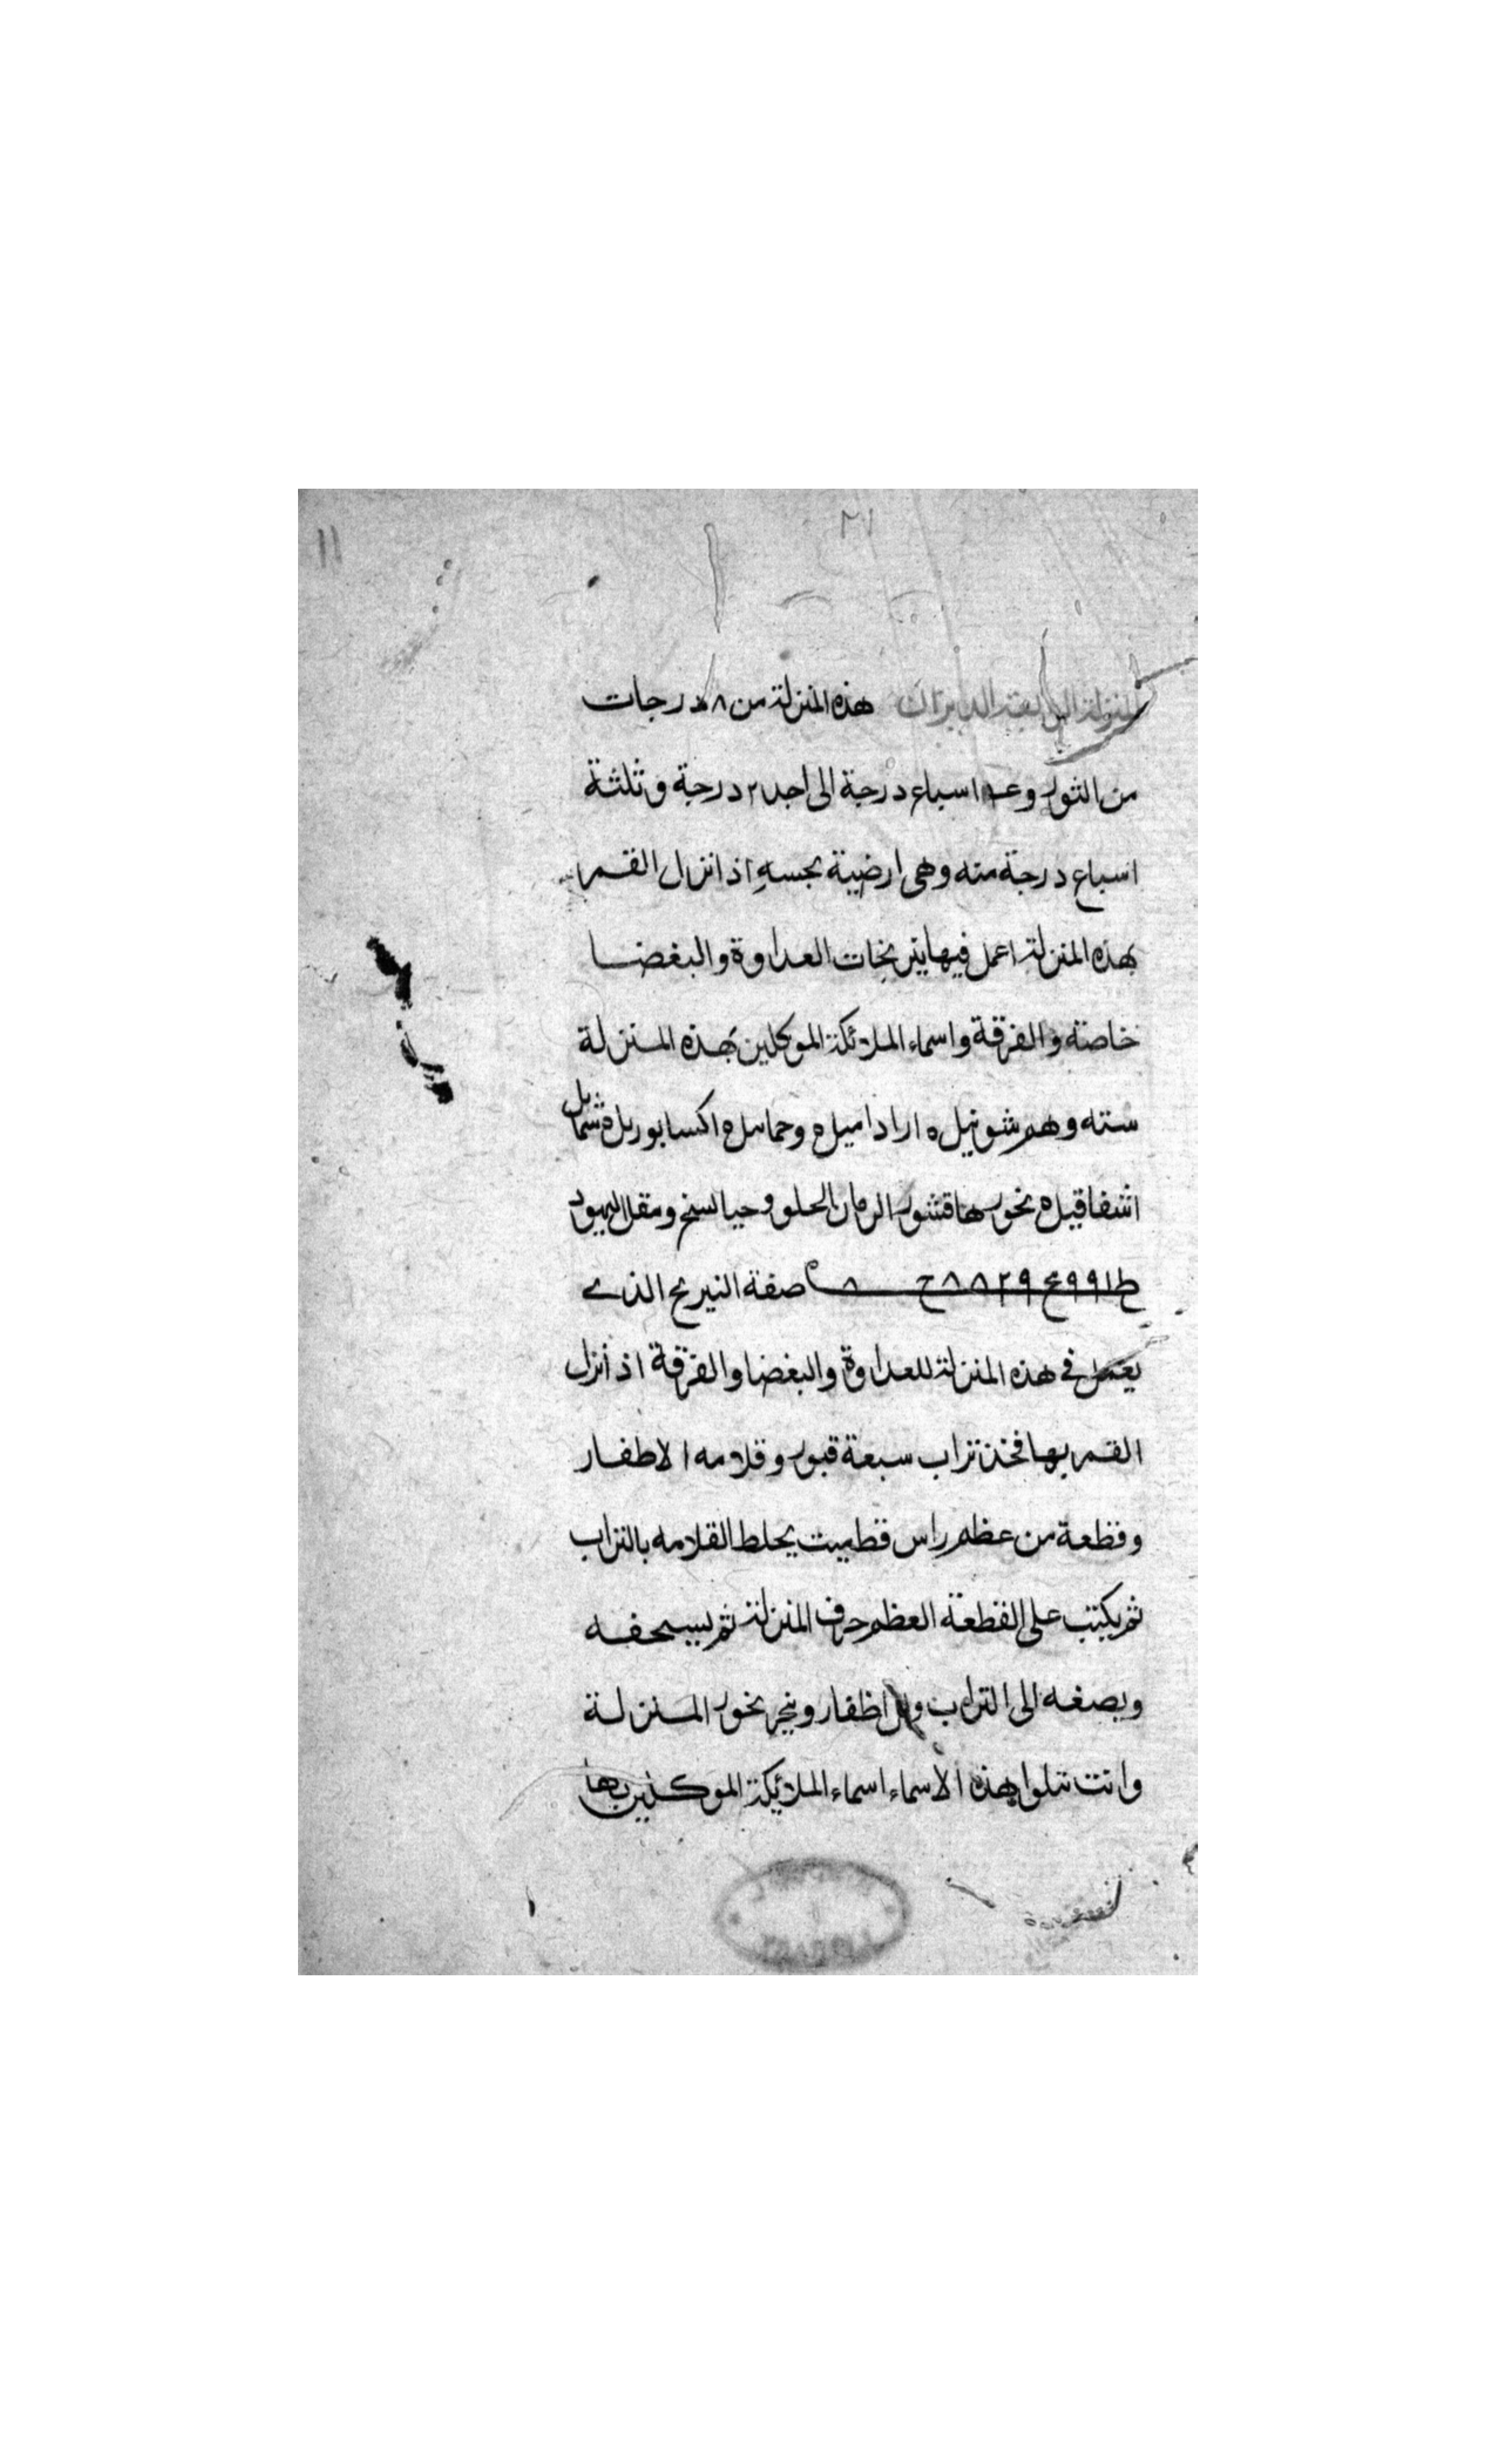 المنزلة الرابعة الدبران هذه المنزلة من ٨ درجات
من الثور و اسباع درجة الى احد ٢ درجة وثلثة
اسباع درجة منه وهى ارضية نحسه اذ انزل القمر
بهذه المنزلة اعمل فيها نيرنجات العداوة والبغضا
خاصة والفرقة واسماء الملائكة الموكلين بهذه المنزلة
سته وهم شونيل ه ارادميل ه
بخورها قشور الرمان الحلو ومقل اليهود
صفة النيرنج الذى
يعمل فى هذه المنزلة للعداوة والبغضا والفرقة اذ أنزل
القمر بها فخذ تراب سبعة قبور وقلامه الاظفار
وقطعة من عظم راس قط ميت يخلط القلامه بالتراب
ثم يكتب على القطعة العظم حرف المنزلة ثم يسحقه
ويضفه الى التراب والاظفار وبخر بخور المنزلة
وانت تتلوا بهذه الاسماء اسماء الملائيكة الموكلين بها